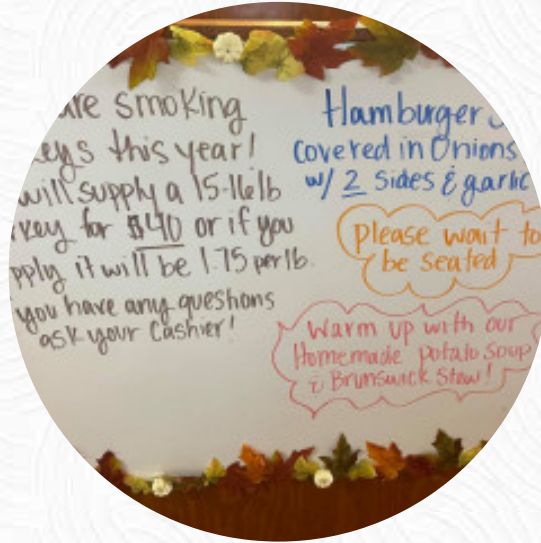 are smoking
eys this year!
will supply a 15-16lb
key for $40 or if you
pply it will be 1.75 per lb.
you have any questions
ask your Cashier!
Hamburger
Covered in Onions
w/ 2 Sides & garlic
please wait to
be seated
Warm up with our
Homemade potato Soup
& Brunswick Stew!